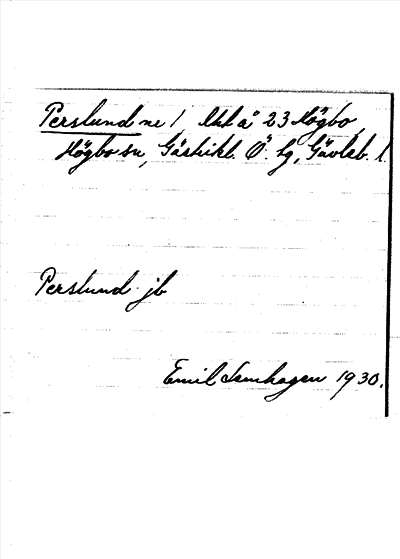 Perslund nr 1 lht å 23 Högbo,
Högbo sn, Gästrikl. Ö. tg, Gävleb. l.
Perslund jb
Emil Semhagen 1930.